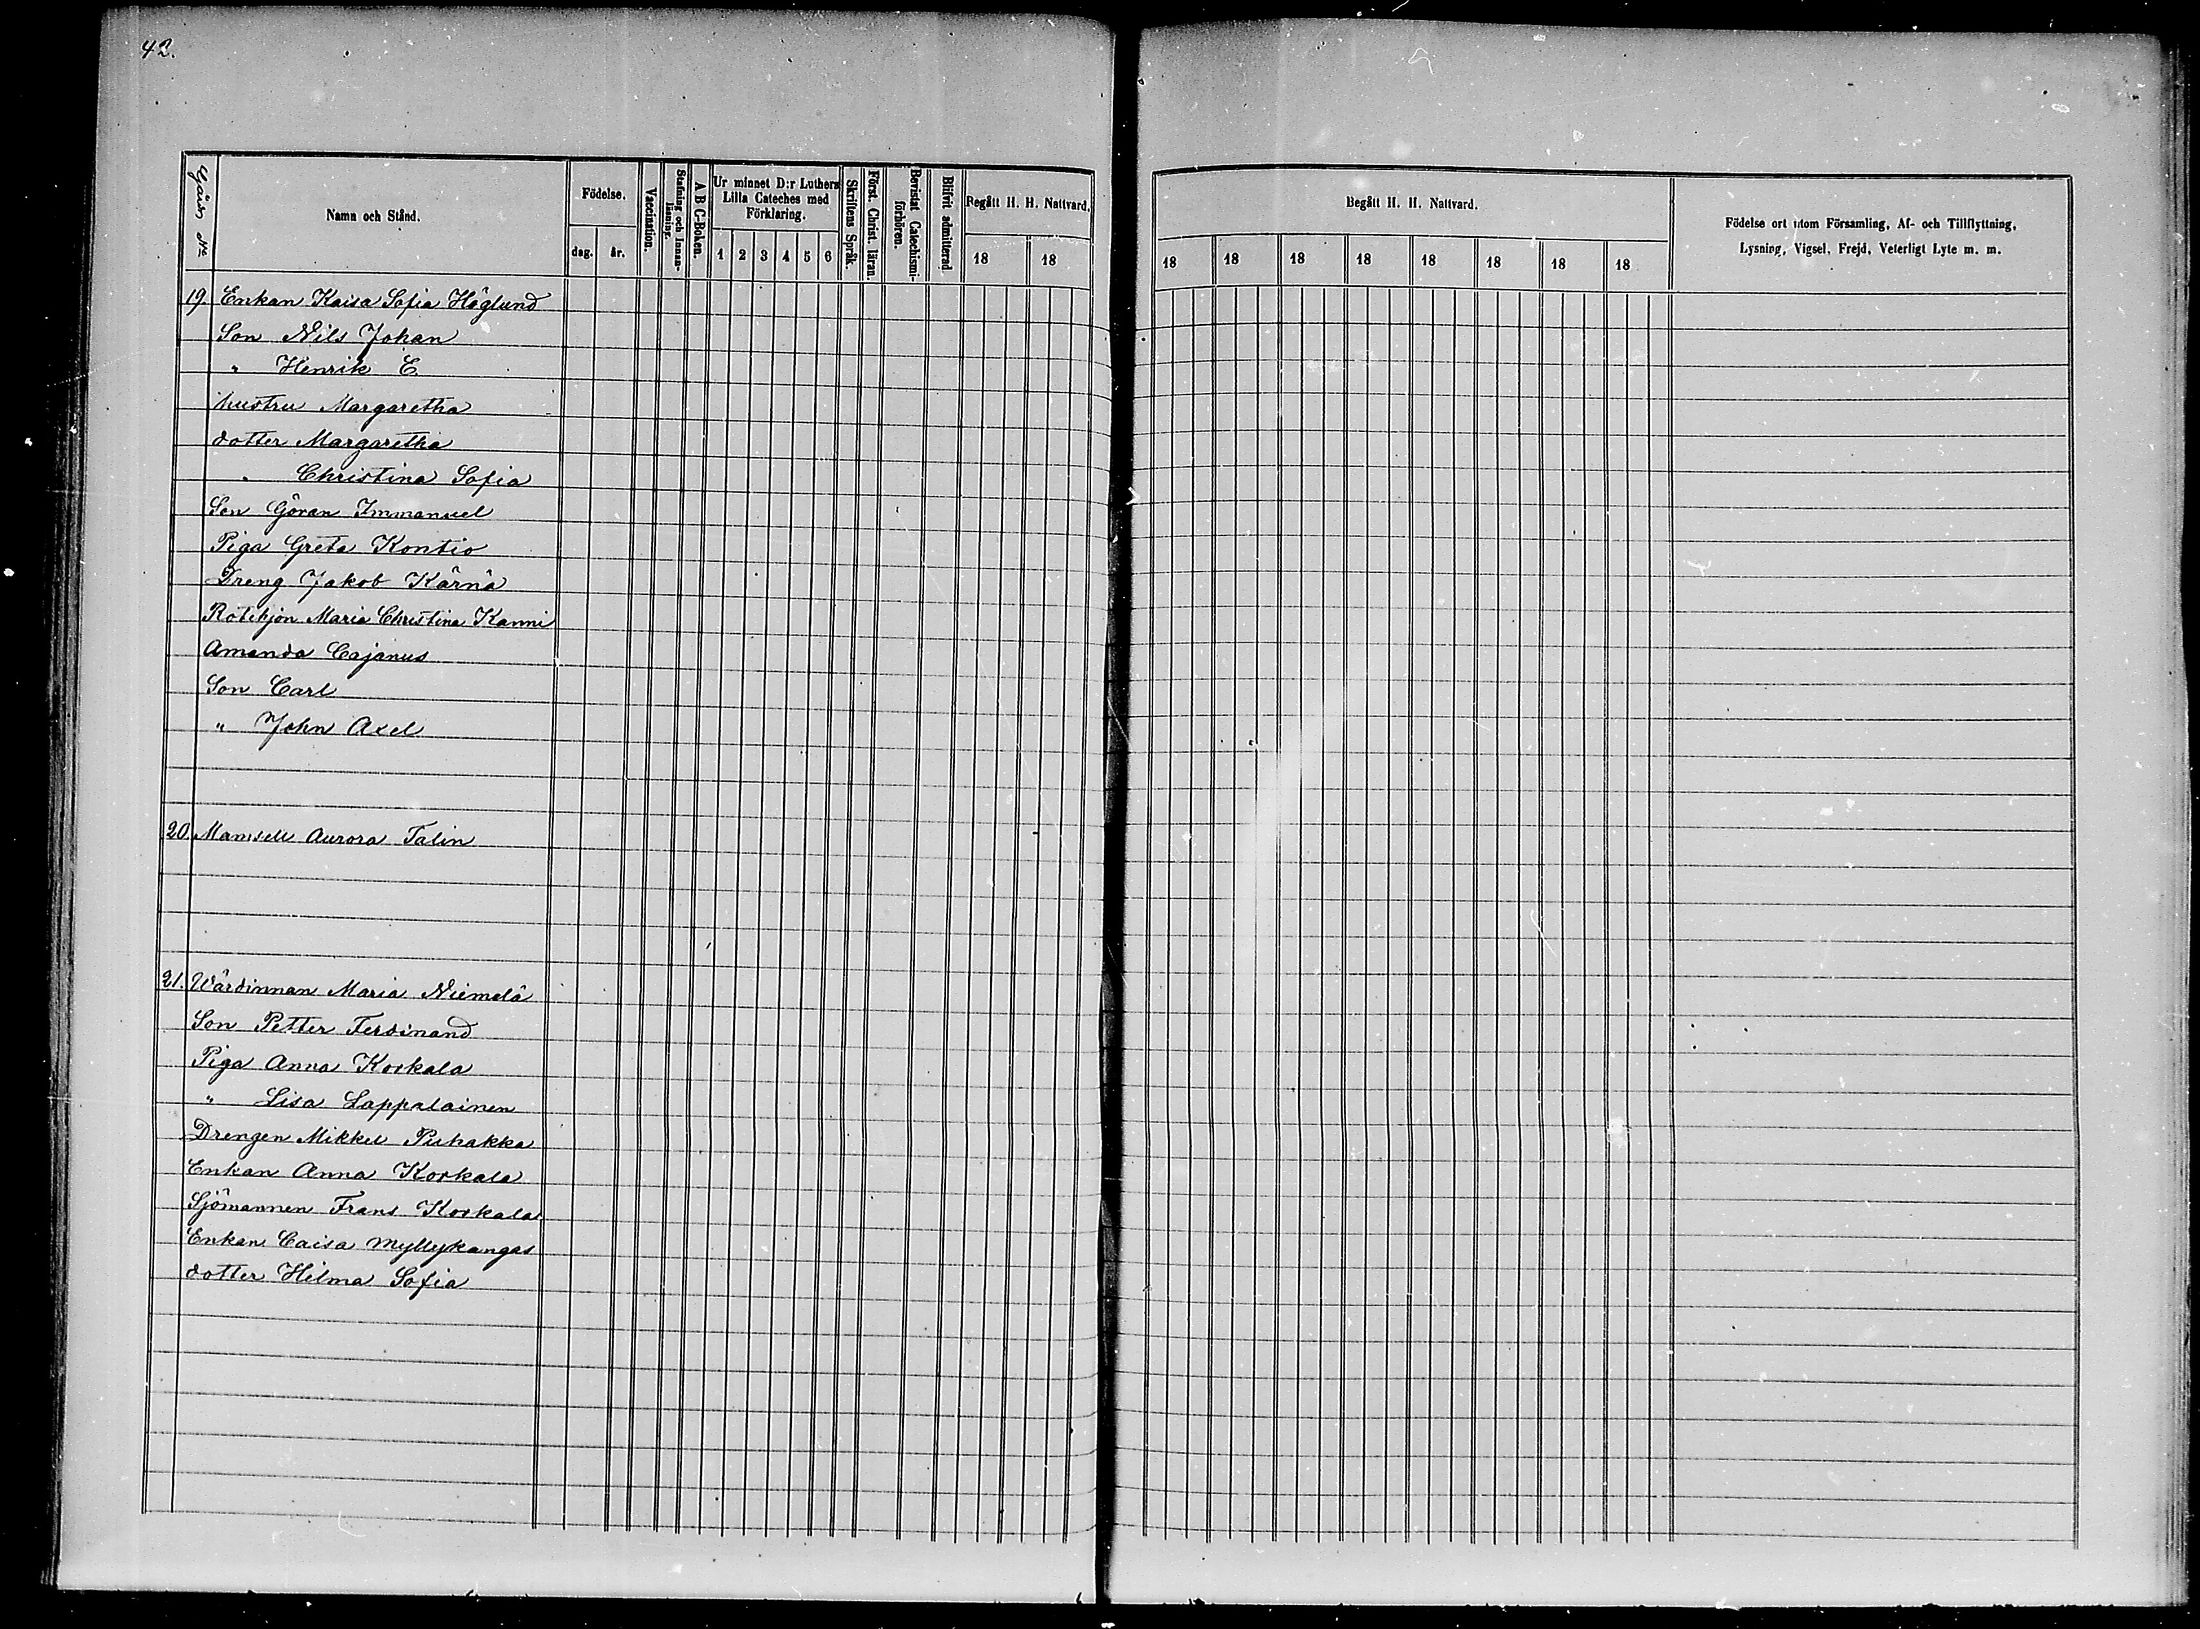 42.
Gård No
Namn och Stånd.
Födelse.
dag.
år.
Vaccination.
Stafning och Innan-läsning.
A B C-Boken.
Ur minnet D:r Luthers
Lilla Cateches med
Förklaring.
1 2 3 4 5 6
Skriftens Språk.
Först. Christ. läran.
Bevistat Catechismi-förhören.
Blifvit admitterad
Begått H. H. Nattvard.
18 18
Begått H. H. Nattvard.
18 18 18 18 18 18 18 18
Födelse ort utom Församling, Af- och Tillflyttning,
Lysning, Vigsel, Frejd, Veterligt Lyte m. m.
19. Enkan Kaisa Sofia Höglund
Son Nils Johan
" Henrik E.
hustru Margaretha
dotter Margaretha
" Christina Sofia
Son Göran Immanuel
Piga Greta Kontio
Dreng Jakob Kärnä
Rotehjon Maria Christina Kanni
Amanda Cajanus
Son Carl
" John Axel
20. Mamsell Aurora Talin
21. Wärdinnan Maria Niemelä
Son Petter Ferdinand
Piga Anna Korkala
" Lisa Lappalainen
Drengen Mikkel Puhakka
Enkan Anna Korkala
Sjömannen Frans Korkala
Enkan Caisa Myllykangas
dotter Hilma Sofia